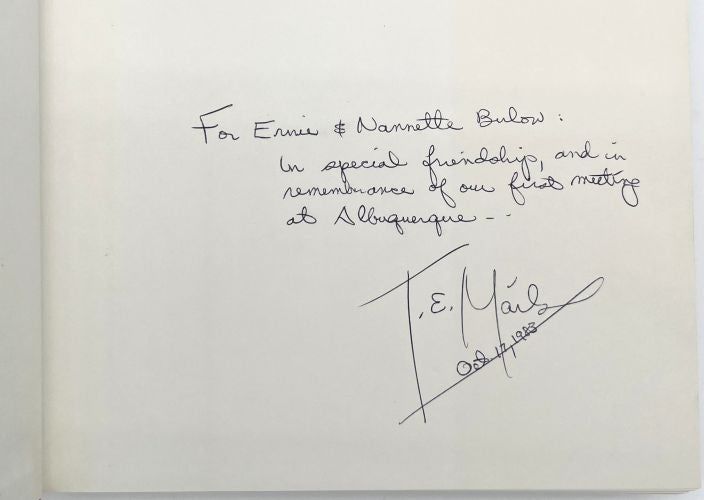 For Ernie & Nannette Bulow:
In special friendship, and in
remembrance of our first meeting
at Albuquerque - - 
T. E. Mails
Oct. 17, 1983